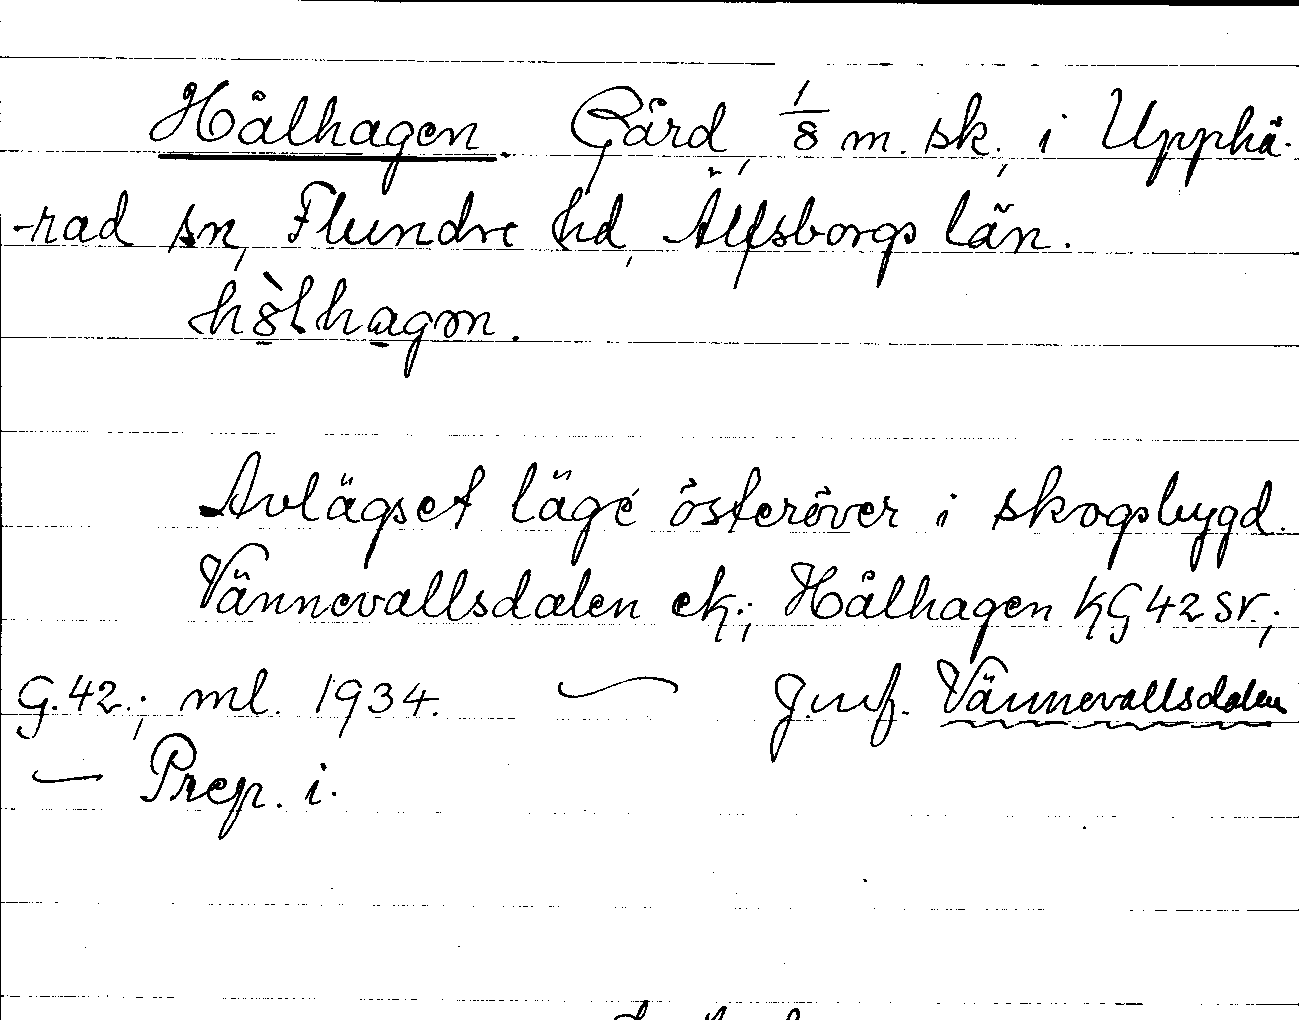 Hålhagen. Gård, 1/8 m. sk., i Upphä-
-rad sn, Flundre hd, Älfsborgs län.
Avlägset läge österöver i skogsbygd.
Vännevallsdalen ek.; Hålhagen KG 42 SV.;
G. 42.; ml. 1934. — Jmf. Vännevallsdalen
— Prep. i.